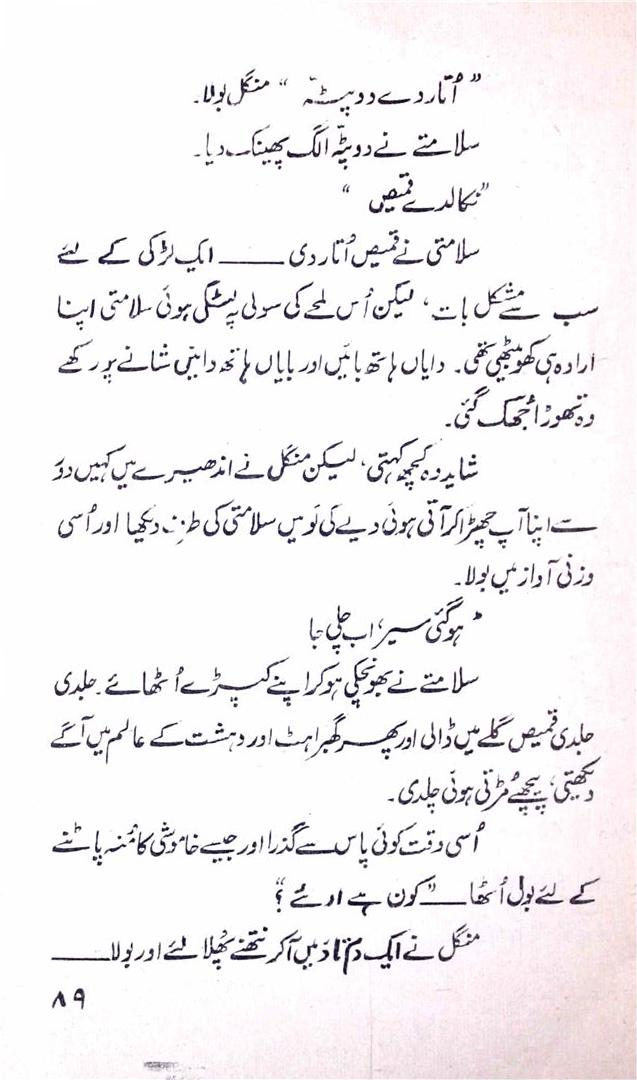 ”اُتار دے دوپٹہّ“ منگل بولا۔
سلامتے نے دوپٹّہ الگ پھینک دیا۔
”نکالدے قمیص“
سلامتی نے قمیص اُتار دی ــــــ ایک لڑکی کے لئے
سب سے مشکل بات، لیکن اُس لمحے کی سولی پہ لٹکی ہوئی سلامتی اپنا
ارادہ ہی کھو بیٹھی تھی۔ دایاں ہاتھ بائیں اور بایاں ہاتھ دائیں شانے پر رکھے
وہ تھوڑا جُھک گئی۔
شاید وہ کچھ کہتی، لیکن منگل نے اندھیرے میں کہیں دوُر
سے اپنا آپ چھڑا کر آتی ہوئی دیے کی لَو میں سلامتی کی طرف دیکھا اور اُسی
وزنی آواز میں بولا۔
”ہو گئی سیر، اب چلی جا
سلامتے نے بھونچکی ہو کر اپنے کپڑے اُٹھائے۔ جلدی
جلدی قمیص گلے میں ڈالی اور پھر گھبراہٹ اور دہشت کے عالم میں آگے
دیکھتی، پیچھے مُڑتی ہوئی چلدی۔
اُسی وقت کوئی پاس سے گذرا اور جیسے خاموشی کا مُنہ پاٹنے
کے لئے بول اُٹھا ــــ ”کون ہے اوئے؟“
منگل نے ایک دم تاؤ میں آ کر نتھنے پُھلا لئے اور بولا ــــــ
۸۹